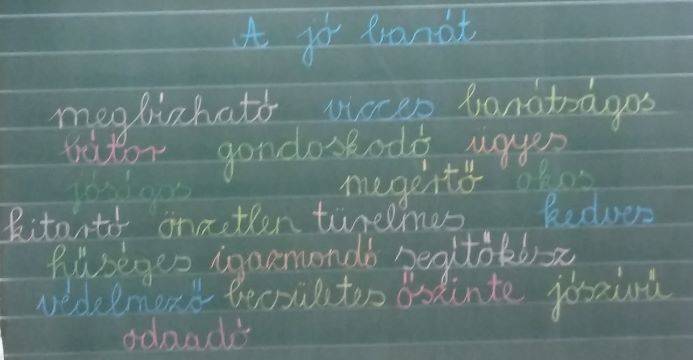 A jó barát
megbízható vicces barátságos
bátor gondoskodó ügyes
jóságos megértő okos
kitartó önzetlen türelmes kedves
hűséges igazmondó segítőkész
védelmező becsületes őszinte jószívű
odaadó